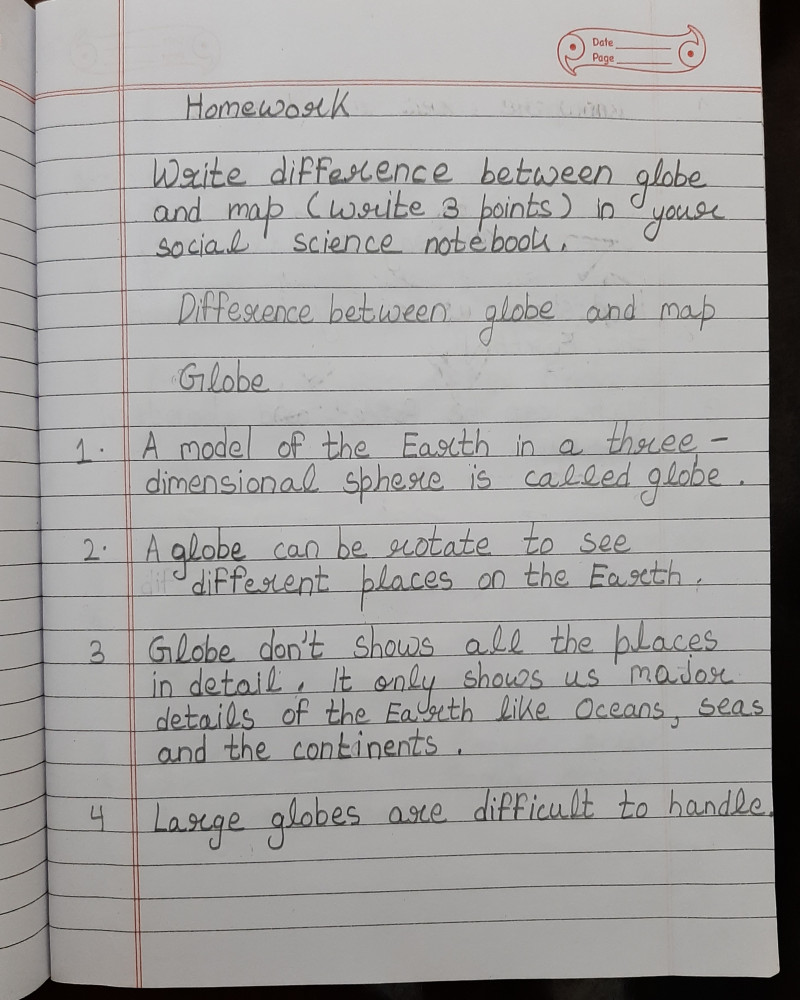 Date
Page
Homework
Write difference between globe
and map (write 3 points) in your
social science notebook.
Difference between globe and map
Globe
1. A model of the Earth in a three-
dimensional sphere is called globe.
2. A globe can be rotate to see
different places on the Earth.
3 Globe don't shows all the places
in detail. It only shows us major
details of the Earth like Oceans, seas
and the continents.
4 Large globes are difficult to handle.